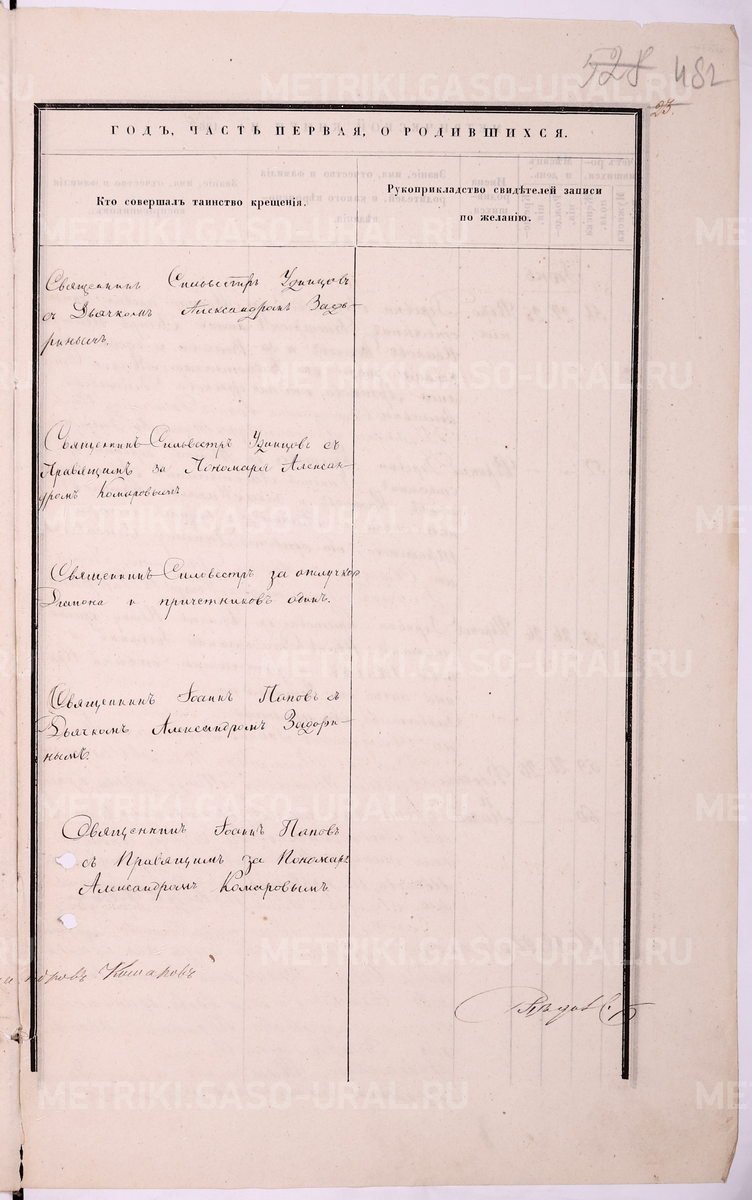 528 482
23.
ГОДЪ, ЧАСТЬ ПЕРВАЯ, О РОДИВШИХСЯ.
Кто совершалъ таинство крещенія.
Рукоприкладство свидѣтелей записи
по желанію.
Священникъ Сильвестръ Удинцовъ
съ Дьячкомъ Александромъ Задо-
ринымъ.
Священникъ Сильвестръ Удинцовъ съ
Правящимъ за Пономаря Алексан-
дромъ Комаровымъ
Священникъ Силовестръ за отлучкою
Діакона и причетниковъ одинъ.
Священникъ Іоаннъ Поповъ съ
Дьячкомъ Александромъ Задори-
нымъ.
Священникъ Іоаннъ Поповъ
съ Правящимъ за Пономаря
Александромъ Комаровымъ
Комаровъ
METRIKI.GASO-URAL.RU